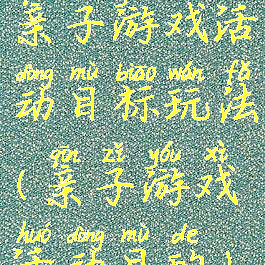 亲子游戏活
dòng mù biāo wán fǎ
动目标玩法
qīn zǐ yóu xì
(亲子游戏
huó dòng mù de
活动目的)